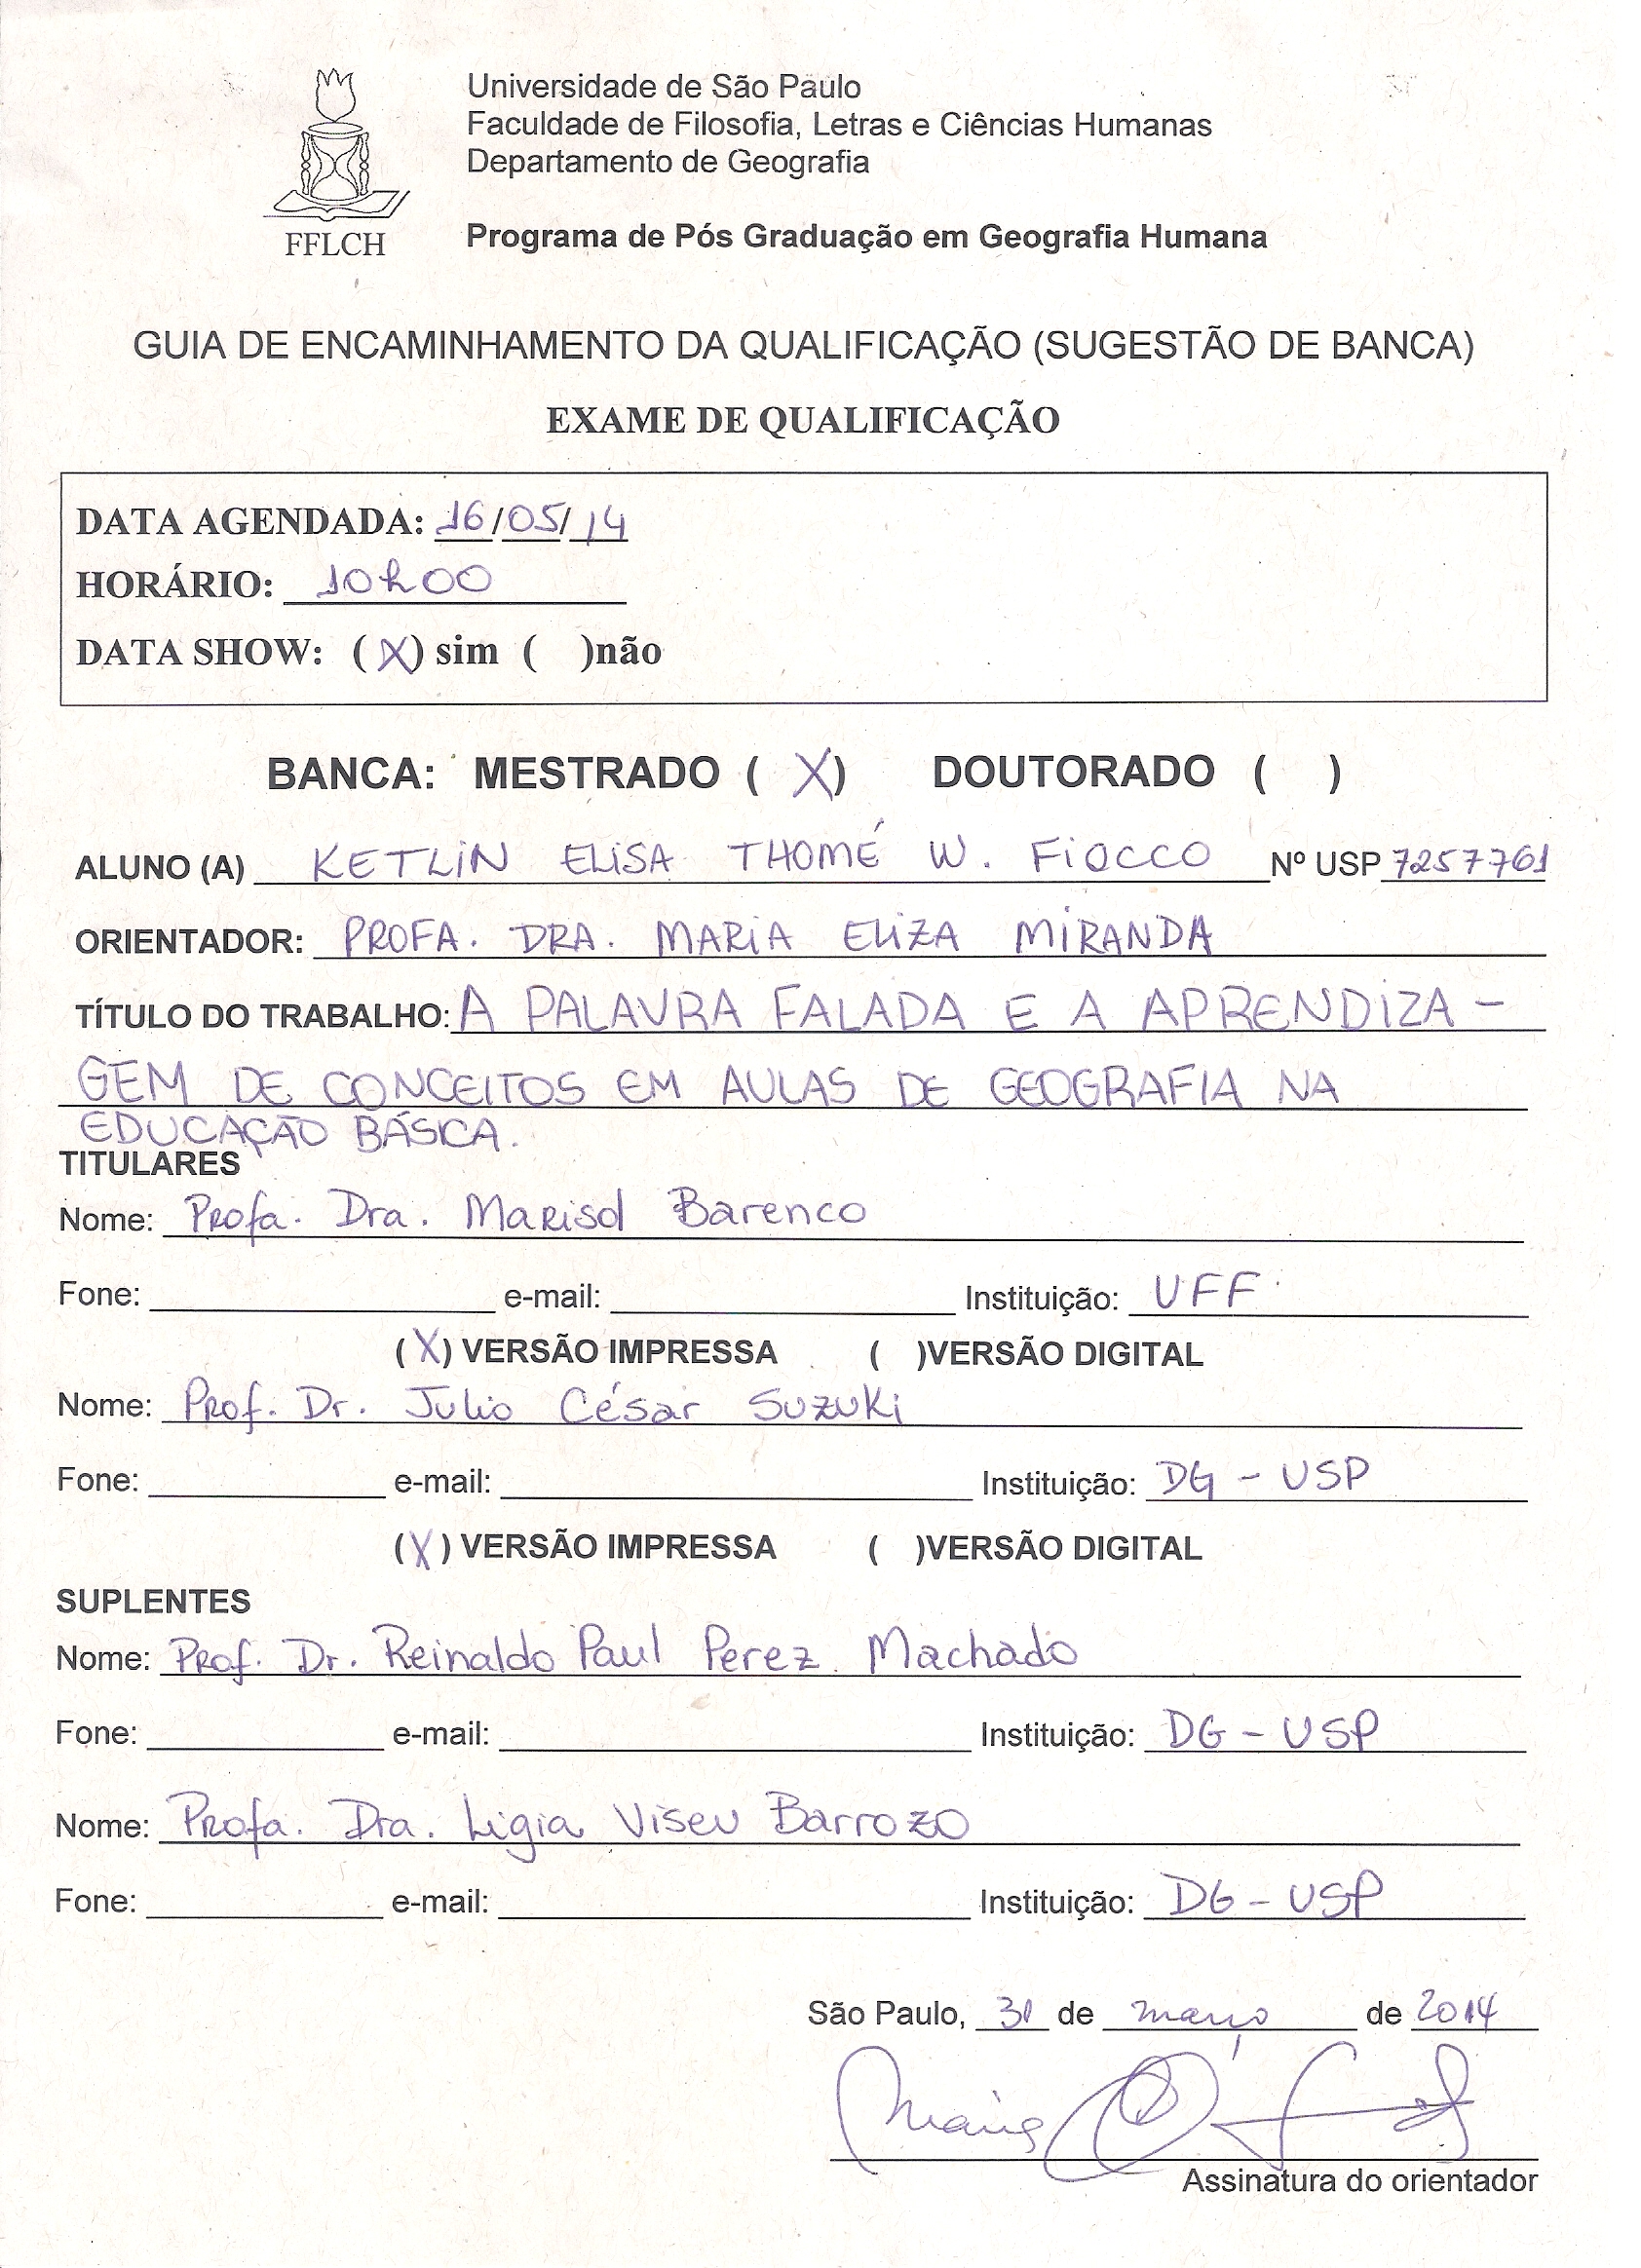 Universidade de São Paulo
Faculdade de Filosofia, Letras e Ciências Humanas
Departamento de Geografia
FFLCH
Programa de Pós Graduação em Geografia Humana
GUIA DE ENCAMINHAMENTO DA QUALIFICAÇÃO (SUGESTÃO DE BANCA)
EXAME DE QUALIFICAÇÃO
DATA AGENDADA: 16/05/14
HORÁRIO: 10h00
DATA SHOW: (X) sim ( )não
BANCA: MESTRADO ( X) DOUTORADO ( )
ALUNO (A) KETLIN ELISA THOMÉ W. FIOCCO Nº USP 7257761
ORIENTADOR: PROFA. DRA. MARIA ELIZA MIRANDA
TÍTULO DO TRABALHO: A PALAVRA FALADA E A APRENDIZA-
GEM DE CONCEITOS EM AULAS DE GEOGRAFIA NA
EDUCAÇÃO BÁSICA.
TITULARES
Nome: Profa. Dra. Marisol Barenco
Fone: e-mail: Instituição: UFF
(X) VERSÃO IMPRESSA ( )VERSÃO DIGITAL
Nome: Prof. Dr. Julio César Suzuki
Fone: e-mail: Instituição: DG - USP
(X) VERSÃO IMPRESSA ( )VERSÃO DIGITAL
SUPLENTES
Nome: Prof. Dr. Reinaldo Paul Perez Machado
Fone: e-mail: Instituição: DG - USP
Nome: Profa. Dra. Ligia Viseu Barrozo
Fone: e-mail: Instituição: DG - USP
São Paulo, 31 de março de 2014
Maria
Assinatura do orientador